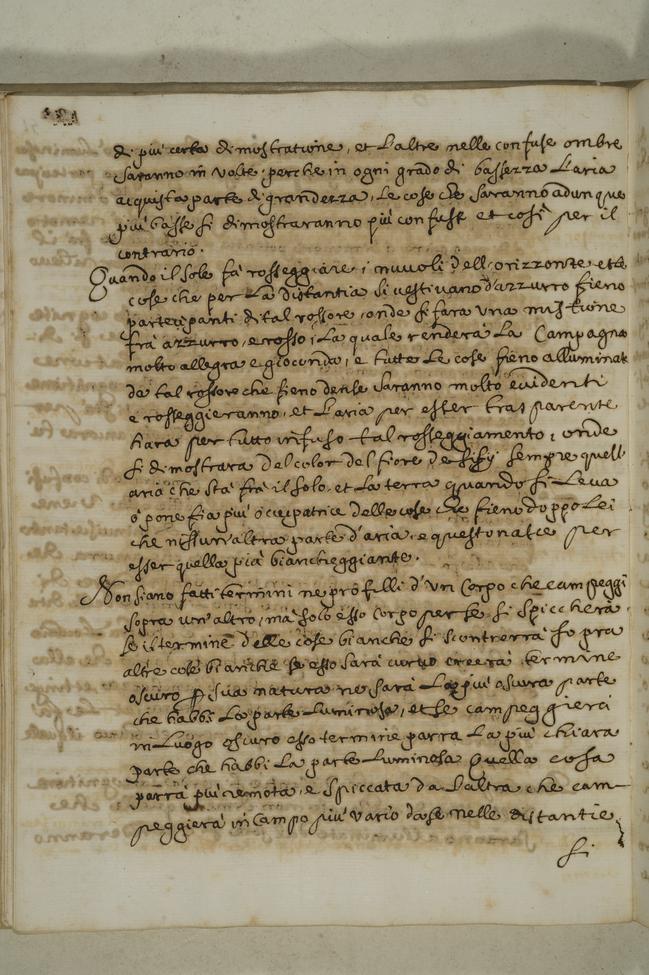 di più certa dimostratione, et L'altre nelle confuse ombre
saranno in volte: perche in ogni grado di bassezza L'aria
acquista parte di grandezza, Le cose che saranno adunque
più basse si dimostraranno più confuse et così per il
contrario.
Quando il sole fà rosseggiare i nuvoli dell'orizzonte et le
cose che per La distantia si vestivano d'azzurro fieno
partecipanti di tal rossore, onde si farà una mistione
frà azzurro, e rosso, La quale renderà La Campagna
molto allegra e gioconda, e tutte Le cose fieno alluminate
da tal rossore che fieno dense saranno molto evidenti
e rosseggieranno, et L'aria per esser trasparente
harà per tutto infuso tal rosseggiamento, onde
si dimostrarà del color del fiore de sempre quell'
aria che stà frà il sole, et La terra quando si Leva
ò pone fia più occupatrice delle cose che fieno doppo Lei
che nissun'altra parte d'aria, e questo nasce per
esser quella più biancheggiante.
Non siano fatti termini ne profilli d'un Corpo che campeggi
sopra un'altro, mà solo esso Corpo per se si spiccherà
se il termine delle cose bianche si scontrerrà sopra
altre cose bianche se esso sarà curvo creerà termine
oscuro p sua natura ne sarà La più oscura parte
che habbi La parte Luminosa, et se campeggierà
in Luogo oscuro esso termine parrà La più chiara
parte che habbi La parte Luminosa Quella cosa
parrà più remota, e spiccata da L'altra che cam
peggierà in Campo più vario da se nelle distantie
si